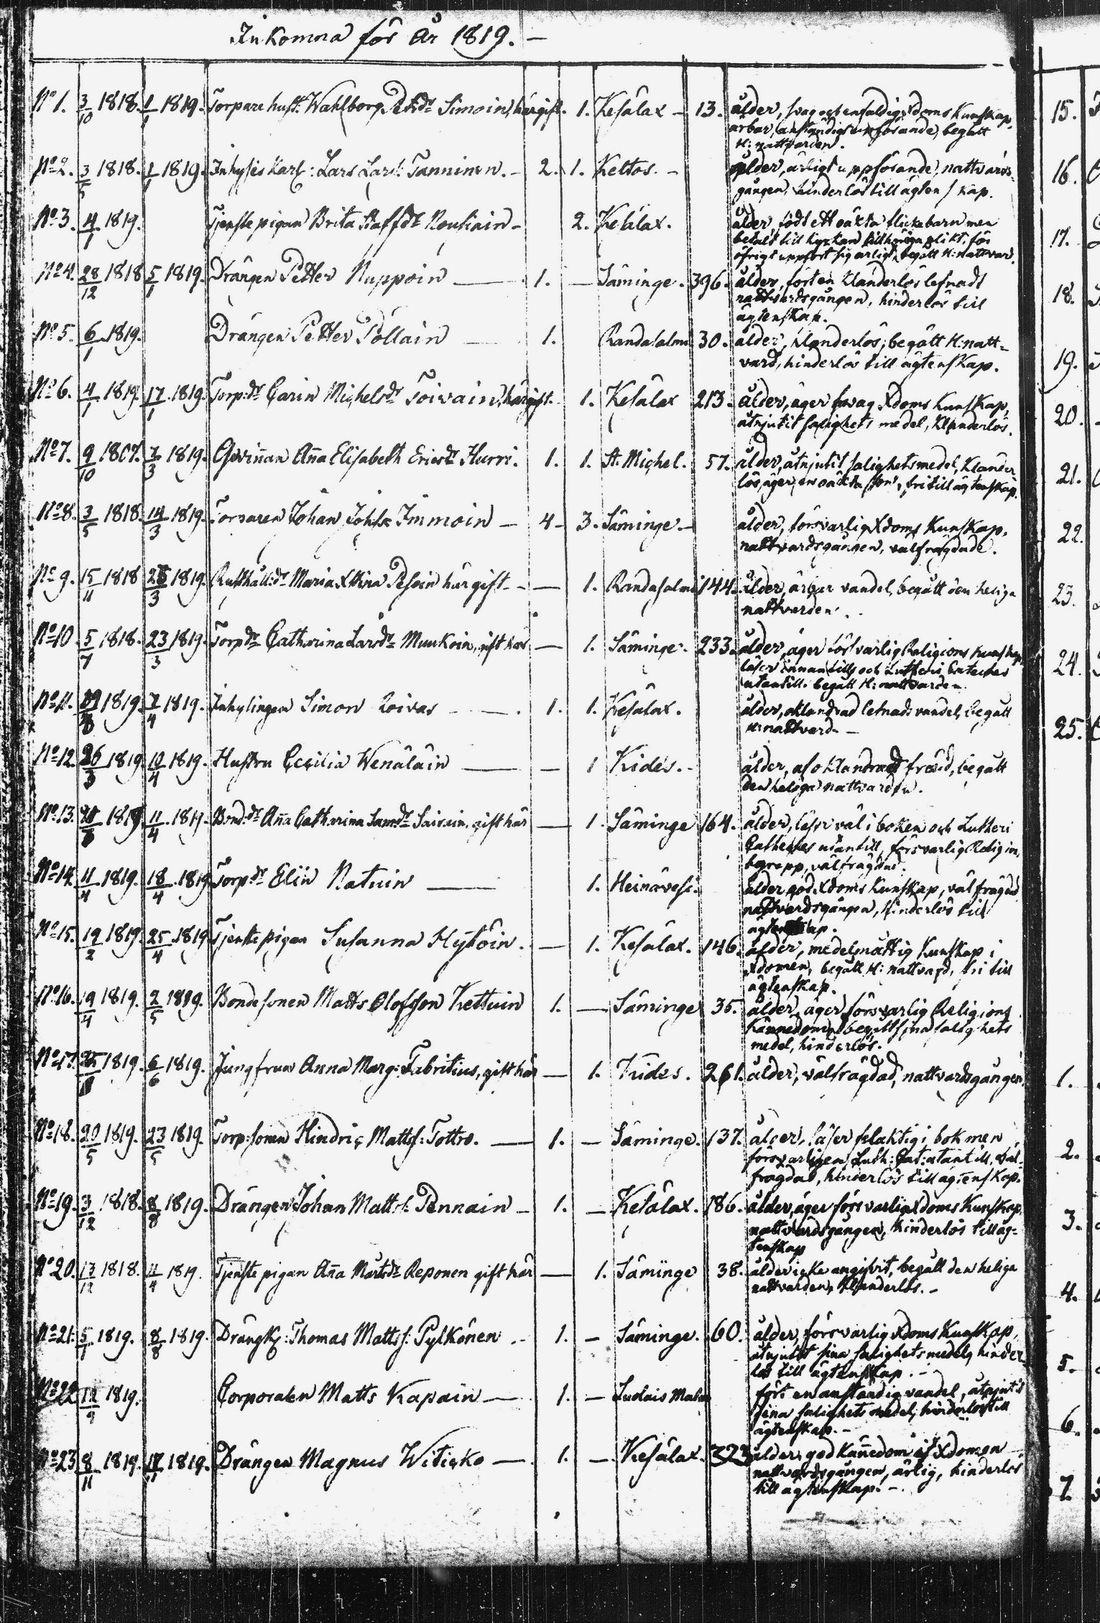 Inkomna för År 1819. –
No 1. 3/10 1818. 1/1 1819. Torpare hust. Wahlborg Simoin, här gift. 1. Kesälax – 13. ålder, svag och enfaldig Xdoms Kunskap,
ärbar, anständigt uppförande, begått
H: nattvarden.
No 2. 3/5 1818. 1/1 1819. Inhyses Karl: Lars Larss: Tanninen. – 2. 1. Keltos. – ålder, ärligt uppförande, nattvards-
gången, hinderlös till ägtenskap.
No 3. 4/1 1819. Tjenste pigan Brita Staffsdr Noukiain – 2. Kesälax. ålder, födt ett oäkta flickebarn men
betalt till Kyrkan pligt. för
öfrigt uppfört sig ärligt, begått H: Nattvard.
No 4. 28/12 1818 5/1 1819. Drängen Petter Nuppoin — 1. — Säminge. 396. ålder, fört en klanderlös lefnadt
nattvardsgången, hinderlös till
ägtenskap.
No 5. 6/1 1819. Drängen Petter Pöllain — 1. Randasalmi 30. ålder, klanderlös, begått H: natt-
vard, hinderlös till ägtenskap.
No 6. 4/1 1819. 17/1 1819. Torp:dr Carin Michelsdr Toivain, här gift. 1. Kesälax 213. ålder, äger svag Xdoms Kunskap,
åtnjutit salighets medel, klanderlös.
No 7. 9/10 1807. 7/3 1819. Gevinnan Aña Elisabeth Ericsdr Hurri. 1. 1. St. Michel. 57. ålder, åtnjutit salighetsmedel, klander
lös, äger en oäkta son, fri till ägtenskap.
No 8. 3/5 1818. 14/3 1819. Torparen Johan Johss Immoin — 4 – 3. Säminge – ålder, försvarlig Xdoms Kunskap,
nattvardsgången, välfrägdade.
No 9. 15/11 1818 1819. Rusthålls:dr Maria Stina Pesoin här gift – — 1. Randasalmi 144. ålder, ärbar vandel, begått den heliga
nattvarden.
No 10. 5/7 1818. 23/3 1819. Torp:dr Catharina Larsdr Muukoin, gift här — 1. Säminge. 233. ålder, äger försvarlig Religions kunskap,
läser innantill och Lutheri Cateches
utantill. begått H: nattvarden.
No 11. 1819. 7/4 1819. Inhysingen Simon Loivas — 1. 1. Kesälax. ålder, oklandrad lefnads vandel, begått
H: nattvard. –
No 12. 26/3 1819 10/4 1819. Hustru Cecilia Wenäläin — — 1 Kides. – ålder, af oklandrad fräjd, begått
den heliga nattvarden.
No 13. 1819 11/4 1819. Bond:dr Aña Catharina Samdr Sairain, gift här — 1. Säminge 164. ålder, läser väl i boken och Lutheri
Catheches utantill, försvarlig Religions
begrepp, välfrägdad.
No 14. 11/4 1819. 18/4 1819 Torp:dr Elin Natuin — 1. Heinävesi. ålder, god Xdoms Kunskap, välfrägdad
nattvardsgången, hinderlös till
ägtenskap.
No 15. 19/2 1819 25/4 1819 Tjenstepigan Susanna Hyköin. — 1. Kesälax. 146. ålder, medelmåttig Kunskap i
Xdomen, begått H: nattvard, fri till
ägtenskap.
No 16. 19/4 1819. 2/5 1819. Bondesonen Matts Olofsson Kettuin 1. — Säminge 35. ålder, äger försvarlig Religions
Kännedom, begått sina salighets
medel, hinderlös.
No 17. 1819. 6/6 1819. Jungfrun Anna Marg: Fabritius, gift här — 1. Kides. 261. ålder, välfrägdad, nattvardsgången.
No 18. 20/5 1819. 23/5 1819 Torp:sonen Hindric Mattss: Tottro. — 1. — Säminge. 137. ålder, läser felaktig i bok men
försvarligen Luth: Cat: utantill, väl-
frägdad, hinderlös till ägtenskap.
No 19. 3/12 1818. 8/8 1819. Drängen Johan Mattss Pennain – 1. — Kesälax. 186. ålder, äger försvarlig Xdoms Kunskap,
nattvardsgången, hinderlös till äg-
tenskap
No 20. 13/12 1818. 11/4 1819. Tjenste pigan Aña Märtsdr Reponen gift här — 1. Säminge 38. ålder icke angifvit, begått den heliga
nattvarden, klanderlös. –
No 21. 5/7 1819. 8/8 1819. Dräng Thomas Mattss: Pylkönen – 1. – Säminge. 60. ålder, försvarlig Xdoms Kunskap,
åtnjutit sina salighetsmedel, hinder
lös till ägtenskap. –
No 22 12/9 1819. Corporalen Matts Kapain — 1. – fört en anständig vandel, åtnjutit
sina salighets medel, hinderlös till
ägtenskap. –
No 23 8/11 1819. 1819. Drängen Magnus Witicko — 1. – Kesälax. 323 ålder, god kännedom af Xdomen
nattvardsgången, ärlig, hinderlös
till ägtenskap. –
15.
16.
17.
18.
19.
20.
21.
22.
23.
24.
25.
1.
2.
3.
4.
5.
6.
7.